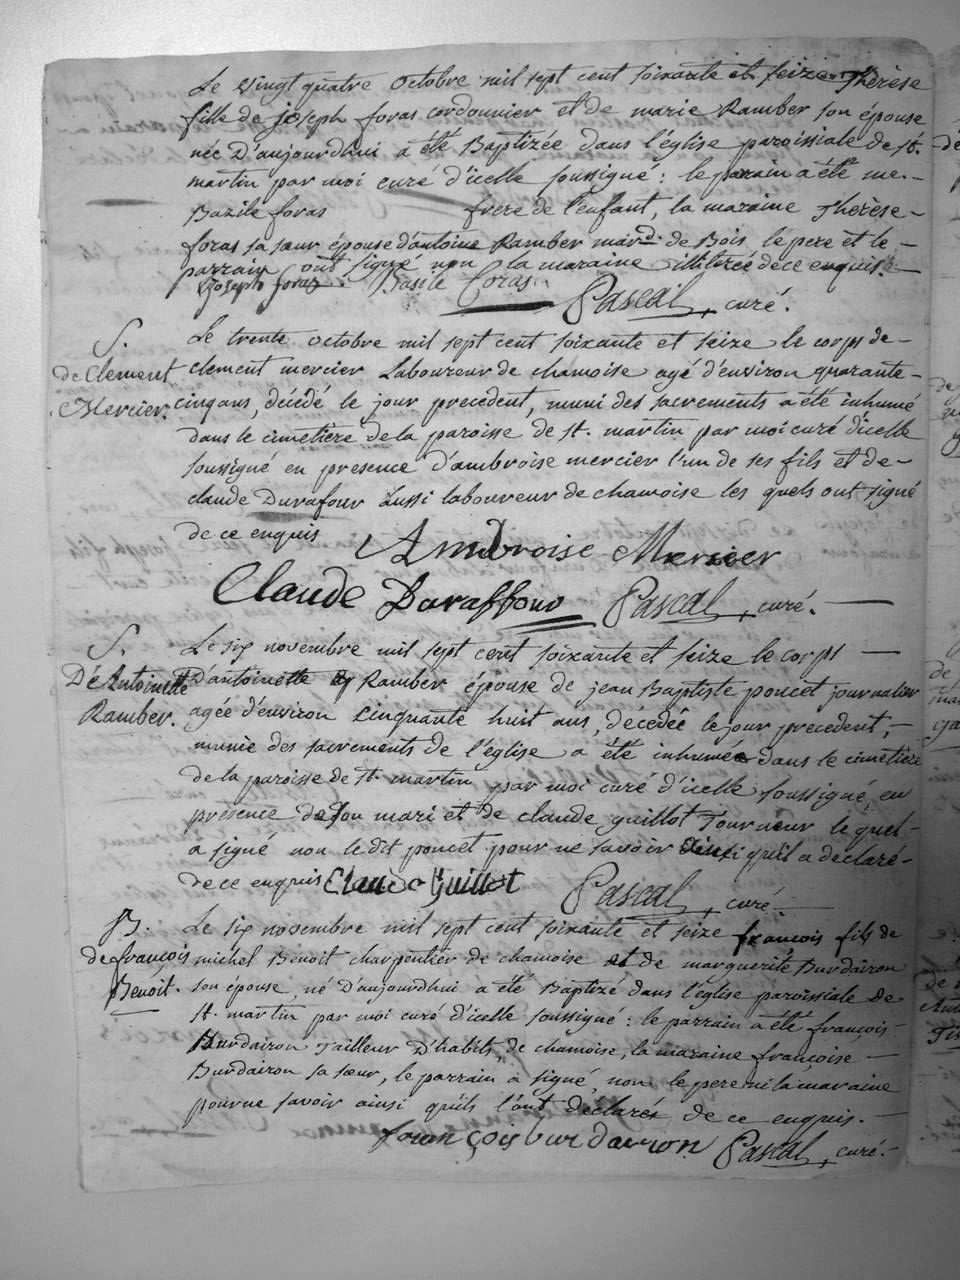 Le vingt quatre octobre mil sept cent soixante et seize Thérèse
fille de joseph foras cordonnier et de marie Ramber son épouse
née D'aujourdhui a été Baptizée dans l'église paroissiale de st.
martin par moi curé d'icelle soussigné : le parain a été me.-
Bazile foras frere de l'enfant, la maraine Thérèse-
foras sa sœur épouse d'antoine Ramber mard. de Bois, le pere et le -
parrain ont signé non la maraine illiterée de ce enquis -
joseph foras Basile Coras
Pascal, curé.
S.
de Clement
Mercier.
Le trente octobre mil sept cent soixante et seize le corps de-
clement mercier Laboureur de chamoise agé d'environ quarante-
cinq ans, décédé le jour precedent, muni des sacrements a été inhumé
dans le cimetière de la paroisse de st. martin par moi curé d'icelle
soussigné en presence d'ambroise mercier l'un de ses fils et de-
claude Durafour aussi laboureur de chamoise les quels ont signé
de ce enquis
Ambroise Mersier
Claude Duraffour Pascal, curé. -
S.
D'é Antoinette
Ramber.
Le six novembre mil sept cent soixante et seize le corps -
D'antoinette Ramber épouse de jean Baptiste poncet journalier
agée d'environ cinquante huit ans, décédée le jour precedent, -
munie des sacrements de l'église a été inhumée dans le cimetière
de la paroisse de st. martin par moi curé d'icelle soussigné, en
presence de son mari et de claude guillot Tourneur le quel-
a signé non le dit poncet pour ne savoir ainsi qu'il a declaré-
de ce enquis Claude Guillot
Pascal, curé
B.
de françois
Benoit.
Le six novembre mil sept cent soixante et seize françois fils de
michel Benoit charpentier de chamoise et de marguerite Burdairon
son épouse, né D'aujourdhui a été Baptizé dans l'église paroissiale de
st. martin par moi curé d'icelle soussigné : le parrain a été françois-
Burdairon Tailleur D'habits, de chamoise, la maraine françoise -
Burdairon sa sœur, le parrain a signé, non le pere ni la maraine
pour ne savoir ainsi qu'ils l'ont declarés de ce enquis. -
fran çois bur dairon Pascal, curé. -